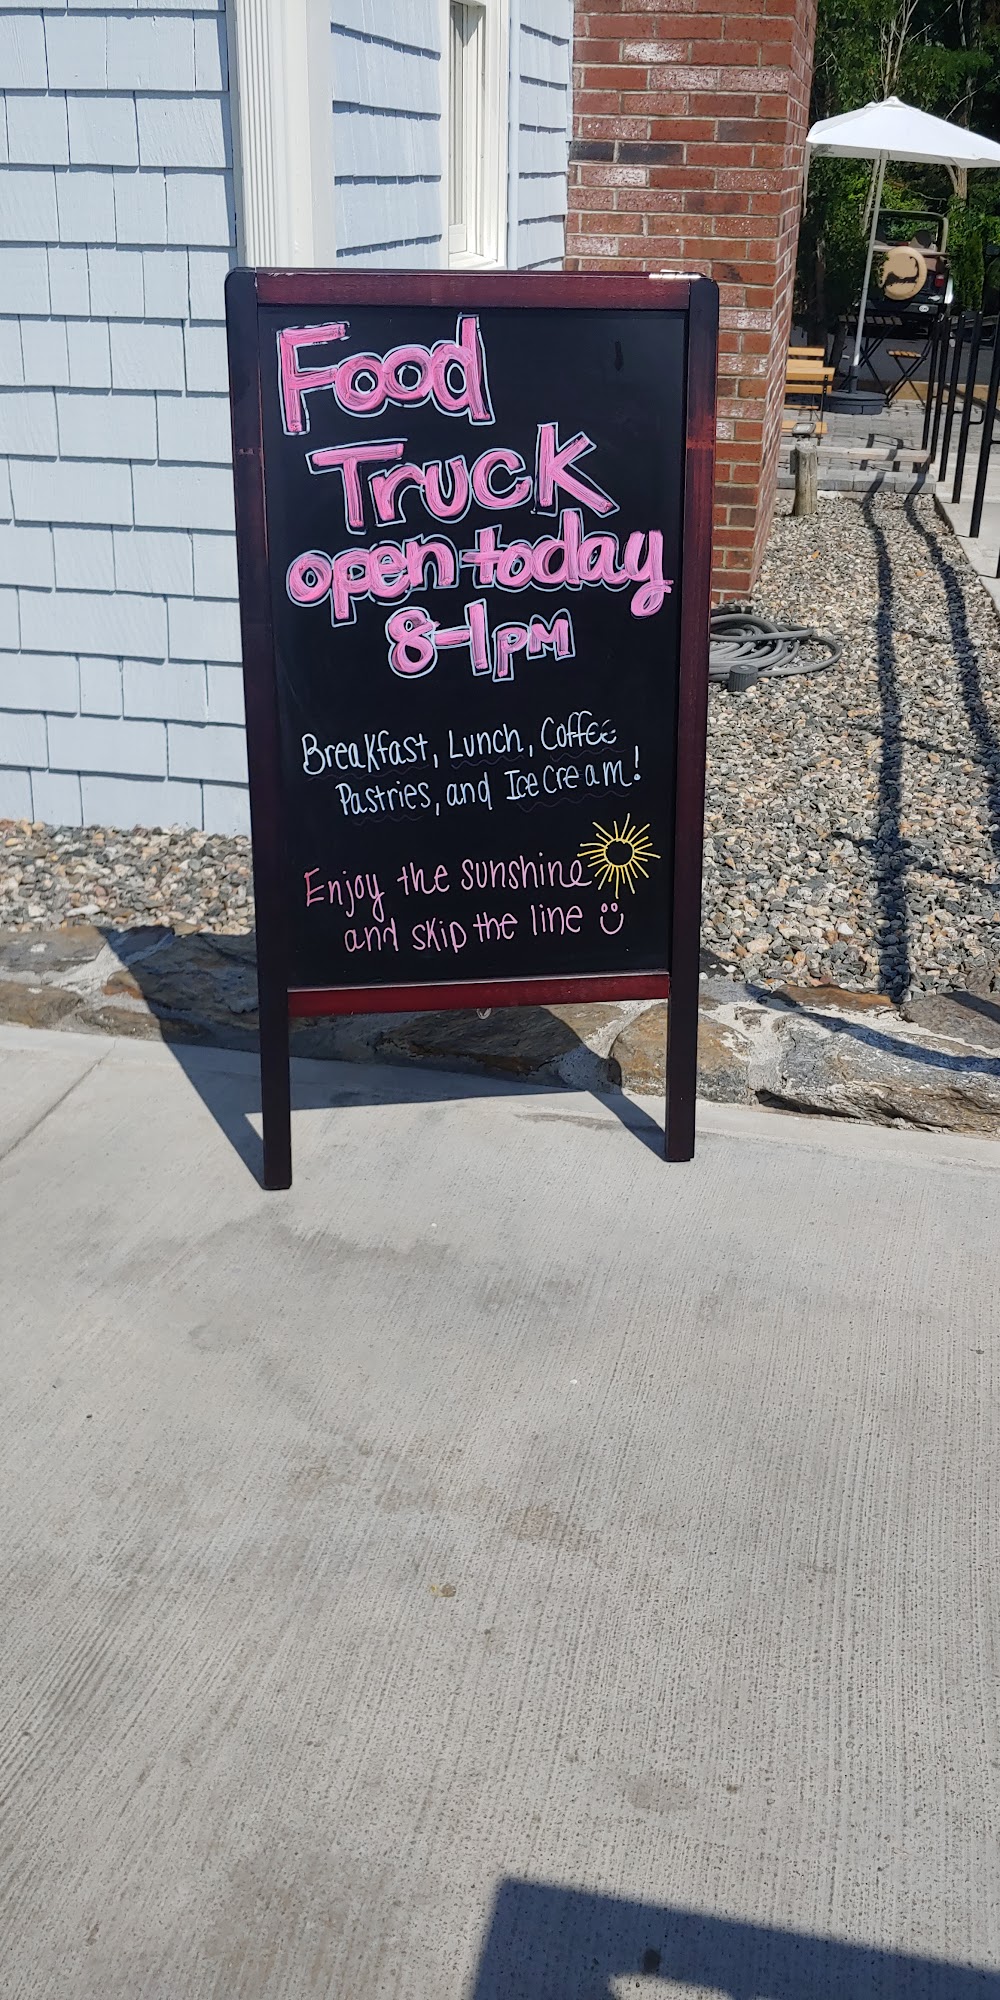 Food
Truck
open today
8-1PM
Breakfast, Lunch, Coffee
Pastries, and Ice cream!
Enjoy the sunshine
and skip the line